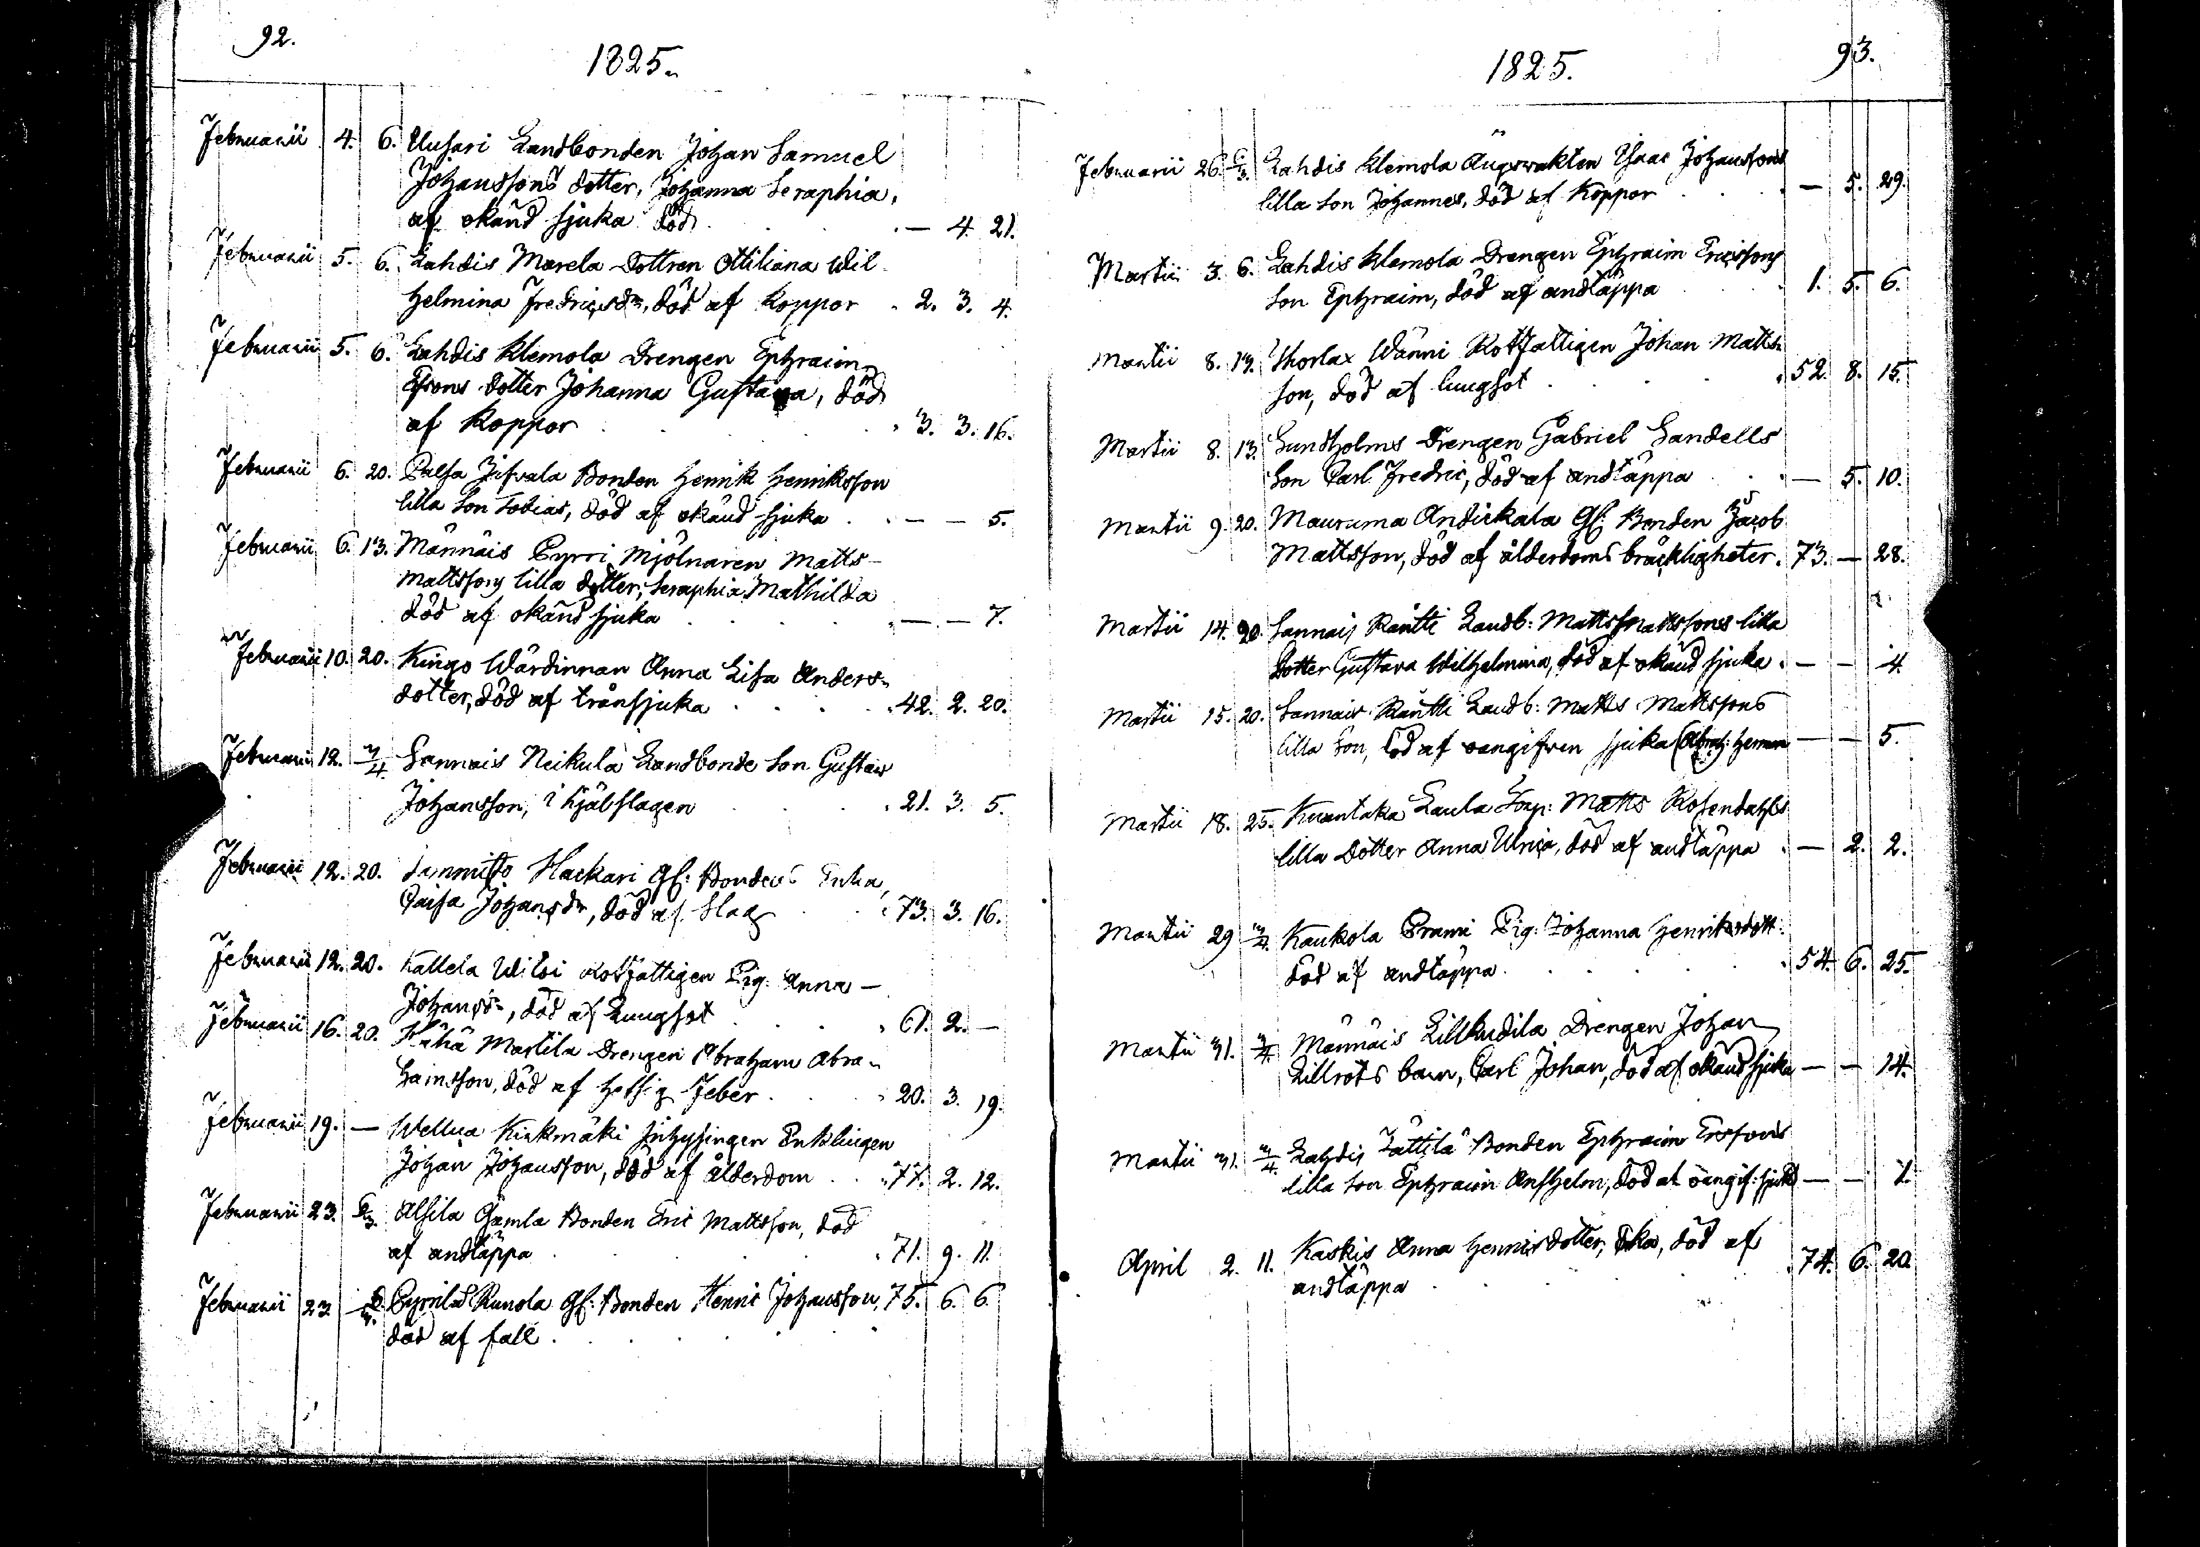 92.
1825.
Februarii 4. 6. Uusari Landbonden Johan Samuel
Johanssons dotter, Johanna Seraphia,
af okänd sjuka död . — 4. 21.
Februarii 5. 6. Lahdis Marela Dottren Ottiliana Wil
helmina Fredricsdr, död af Koppor . 2. 3. 4.
Februarii 5. 6. Lahdis Klemola Drengen Ephraim
Ersons dotter Johanna Gustava, död
af Koppor . 3. 3. 16.
Februarii 6. 20. Bonden Henrik Henriksson
lilla Son Tobias, död af okänd sjuka . — — 5.
Februarii 6. 13. Männäis Pyrri Mjölnaren Matts
Mattssons lilla dotter, Seraphia Mathilda
död af okänd sjuka . — — 7.
Februarii 10. 20. Kingo Wärdinnan Anna Lisa Anders
dotter, död af trånsjuka . 42. 2. 20.
Februarii 12. 3/4 Sannais Neikula Landbonde Son Gustav
Johansson, i . 21. 3. 5.
Februarii 12. 20. Hackari Gl: Bondens Enka,
Caisa Johansdr, död af Slag . 73. 3. 16.
Februarii 12. 20. Kallela Wilbi Rotfattigen Pig. Anna
Johansdr, död af Lungsot . 61. 2. —
Februarii 16. 20. Kähä Martila Drengen Abraham Abra
hamsson, död af hetsig Feber . 20. 3. 19.
Februarii 19. — Wellua Kirkmäki Inhysingen Enklingen
Johan Johansson, död af ålderdom . 77. 2. 12.
Februarii 23. 6/3. Alsila Gamla Bonden Eric Mattsson, död
af andtäppa . 71. 9. 11.
Februarii 23. 6/3. Runola Gl: Bonden Henric Johansson, 75. 6. 6.
död af fall .
1825. 93.
Februarii 26. 6/3. Lahdis Klemola Ängsvakten Isaac Johanssons
lilla Son Johannes, död af Koppor . — 5. 29.
Martii 3. 6. Lahdis Klemola Drengen Ephraim Ericssons
Son Ephraim, död af andtäppa . 1. 5. 6.
Martii 8. 13. Thorlax Wänni Rotfattigen Johan Matts
son, död af lungsot . 52. 8. 15.
Martii 8. 13. Lundholms Drengen Gabriel Sandells
Son Carl Fredric, död af andtäppa . — 5. 10.
Martii 9. 20. Mauruma Andickala Gl: Bonden Jacob
Mattsson, död af ålderdoms bräckligheter . 73. — 28.
Martii 14. 20. Sannais Räntti Landb: Matts Mattssons lilla
Dotter Gustava Wilhelmina, död af okänd sjuka . — — 4
Martii 15. 20. Sannais Räntti Landb: Matts Mattssons
lilla Son, död af oangifven sjuka (Abrah: Herman — — 5.
Martii 18. 25. Kuantaka Laula Torp: Matts Rosendahls
lilla Dotter Anna Ulrica, död af andtäppa . — 2. 2.
Martii 29 3/4. Kaukola Prami Pig. Johanna Henriksdott:
död af andtäppa . 54. 6. 25.
Martii 31. 3/4. Männäis Lillkudila Drengen Johan
Lillrots barn, Carl Johan, död af okänd sjuka — — 14.
Martii 31. 3/4. Lahdis Tättilä Bonden Ephraim Ersons
lilla Son Ephraim Anshelm, död af oangif: sjuka — — 1.
April 2. 11. Kaskis Anna Henricsdotter, Eka, död af
andtäppa . 74. 6. 20